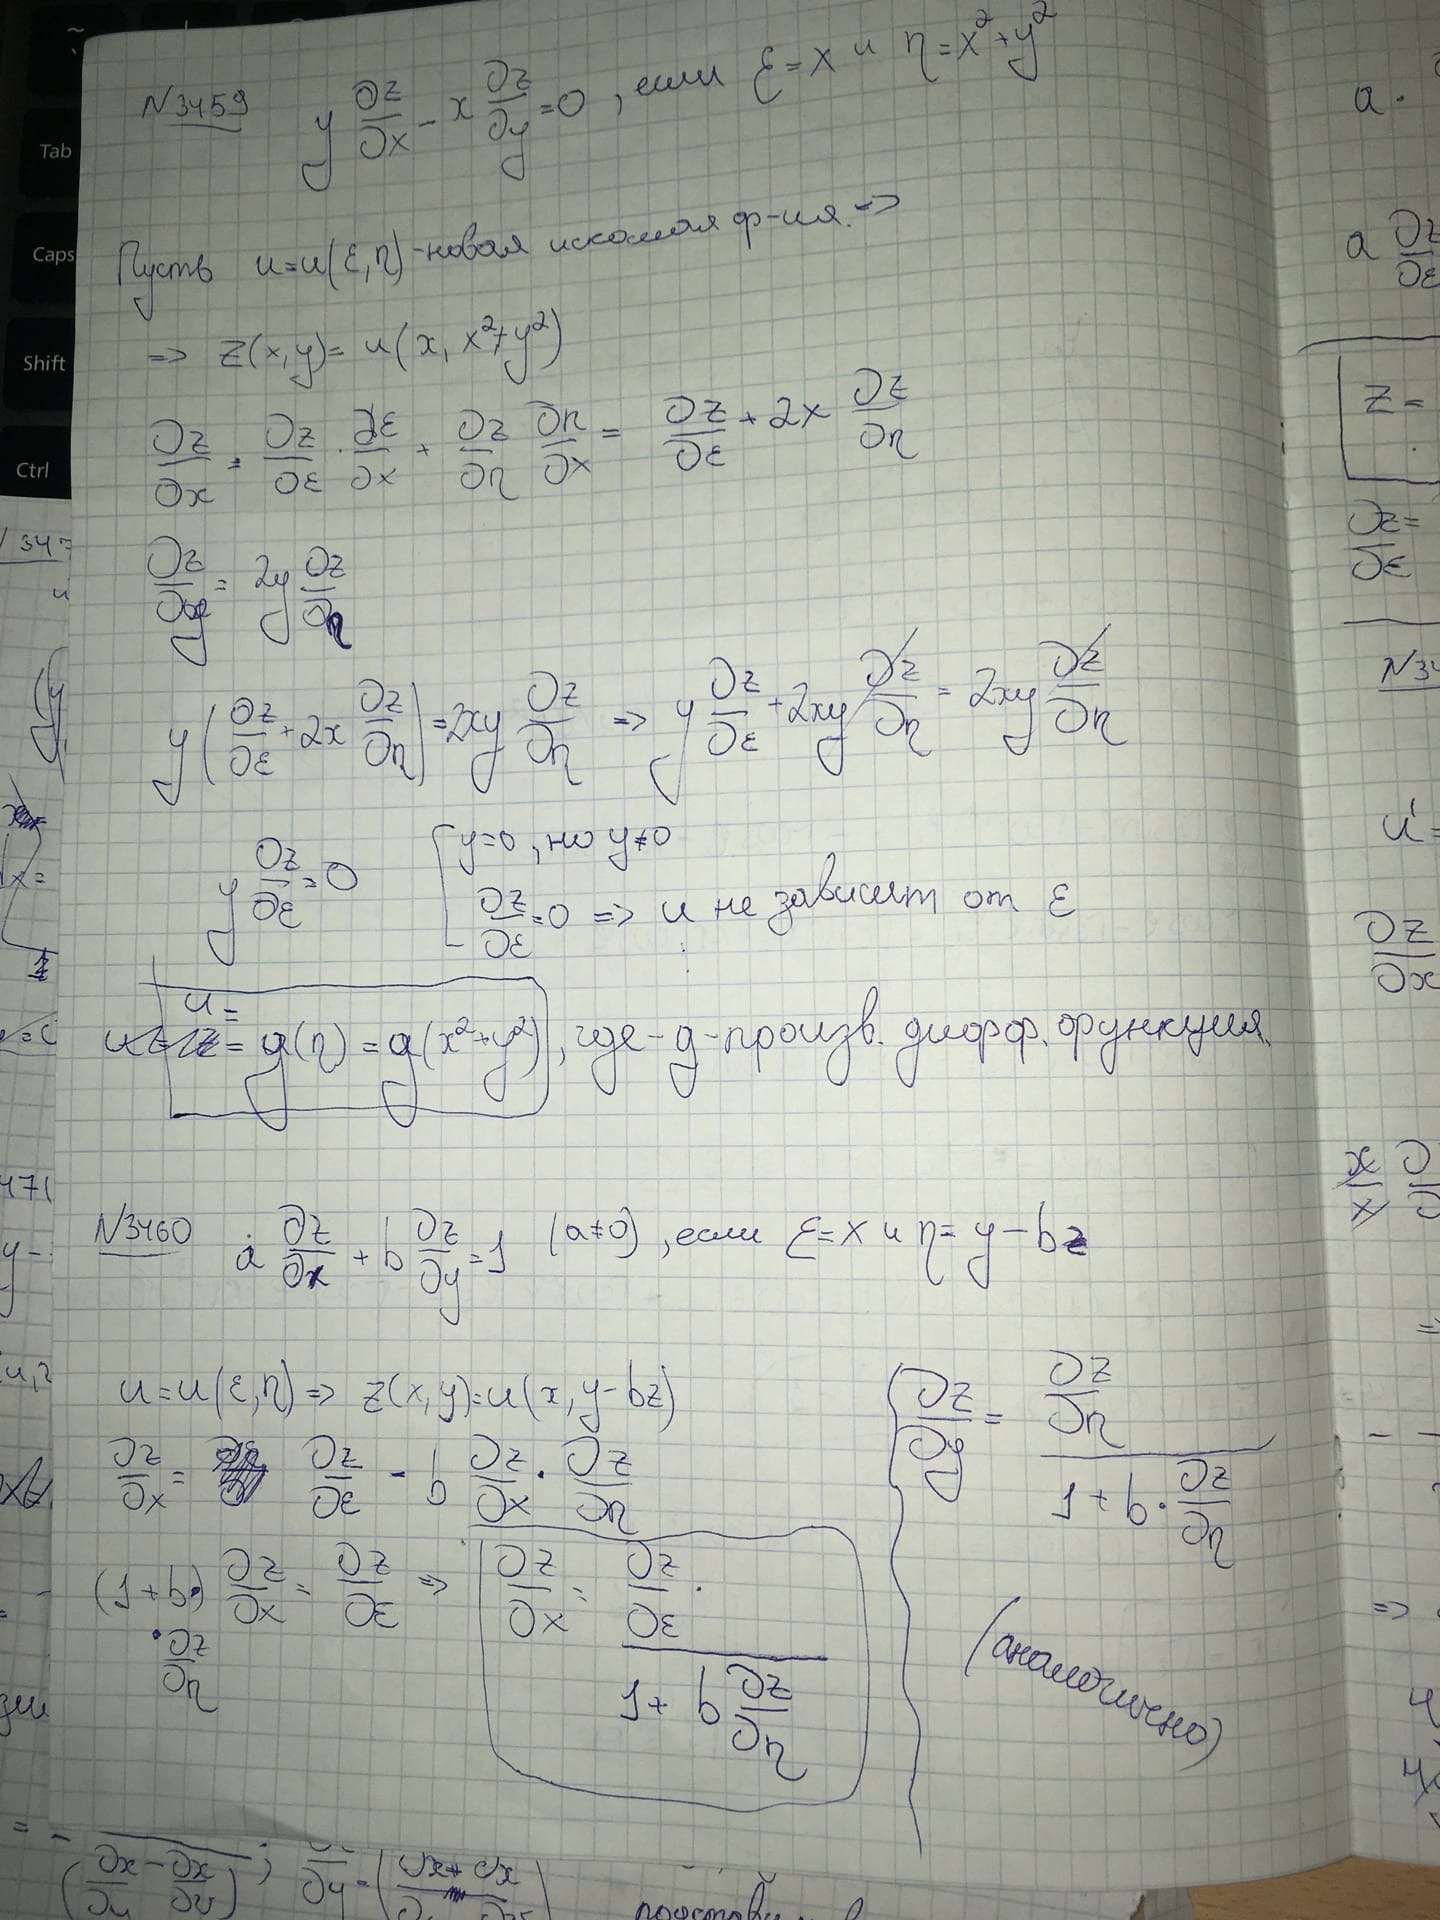 Tab
Caps
Shift
Ctrl
N3459 y ∂z/∂x - x ∂z/∂y = 0, если ξ = x и η = x² + y²
Пусть u = u(ξ, η) - новая искомая ф-ия. =>
=> z(x, y) = u(x, x² + y²)
∂z/∂x = ∂z/∂ξ · ∂ξ/∂x + ∂z/∂η ∂η/∂x = ∂z/∂ξ + 2x ∂z/∂η
∂z/∂y = 2y ∂z/∂η
y(∂z/∂ξ + 2x ∂z/∂η) = 2xy ∂z/∂η => y ∂z/∂ξ + 2xy ∂z/∂η = 2xy ∂z/∂η
y ∂z/∂ξ = 0 [ y = 0, но y ≠ 0
∂z/∂ξ = 0 => u не зависит от ξ
u =
= g(η) = g(x² + y²), где - g - произв. дифф. функция.
N3460 a ∂z/∂x + b ∂z/∂y = 1 (a ≠ 0), если ξ = x и η = y - bz
u = u(ξ, η) => z(x, y) = u(x, y - bz)
∂z/∂x = ∂z/∂ξ - b ∂z/∂x · ∂z/∂η
(1 + b·) ∂z/∂x = ∂z/∂ξ => ∂z/∂x = ∂z/∂ξ · / (1 + b ∂z/∂η)
· ∂z/∂η
∂z/∂y = ∂z/∂η / (1 + b · ∂z/∂η)
(аналогично)
a ·
a ∂z/∂ξ
z =
∂z/∂ξ =
N34
u' =
∂z/∂x
=>